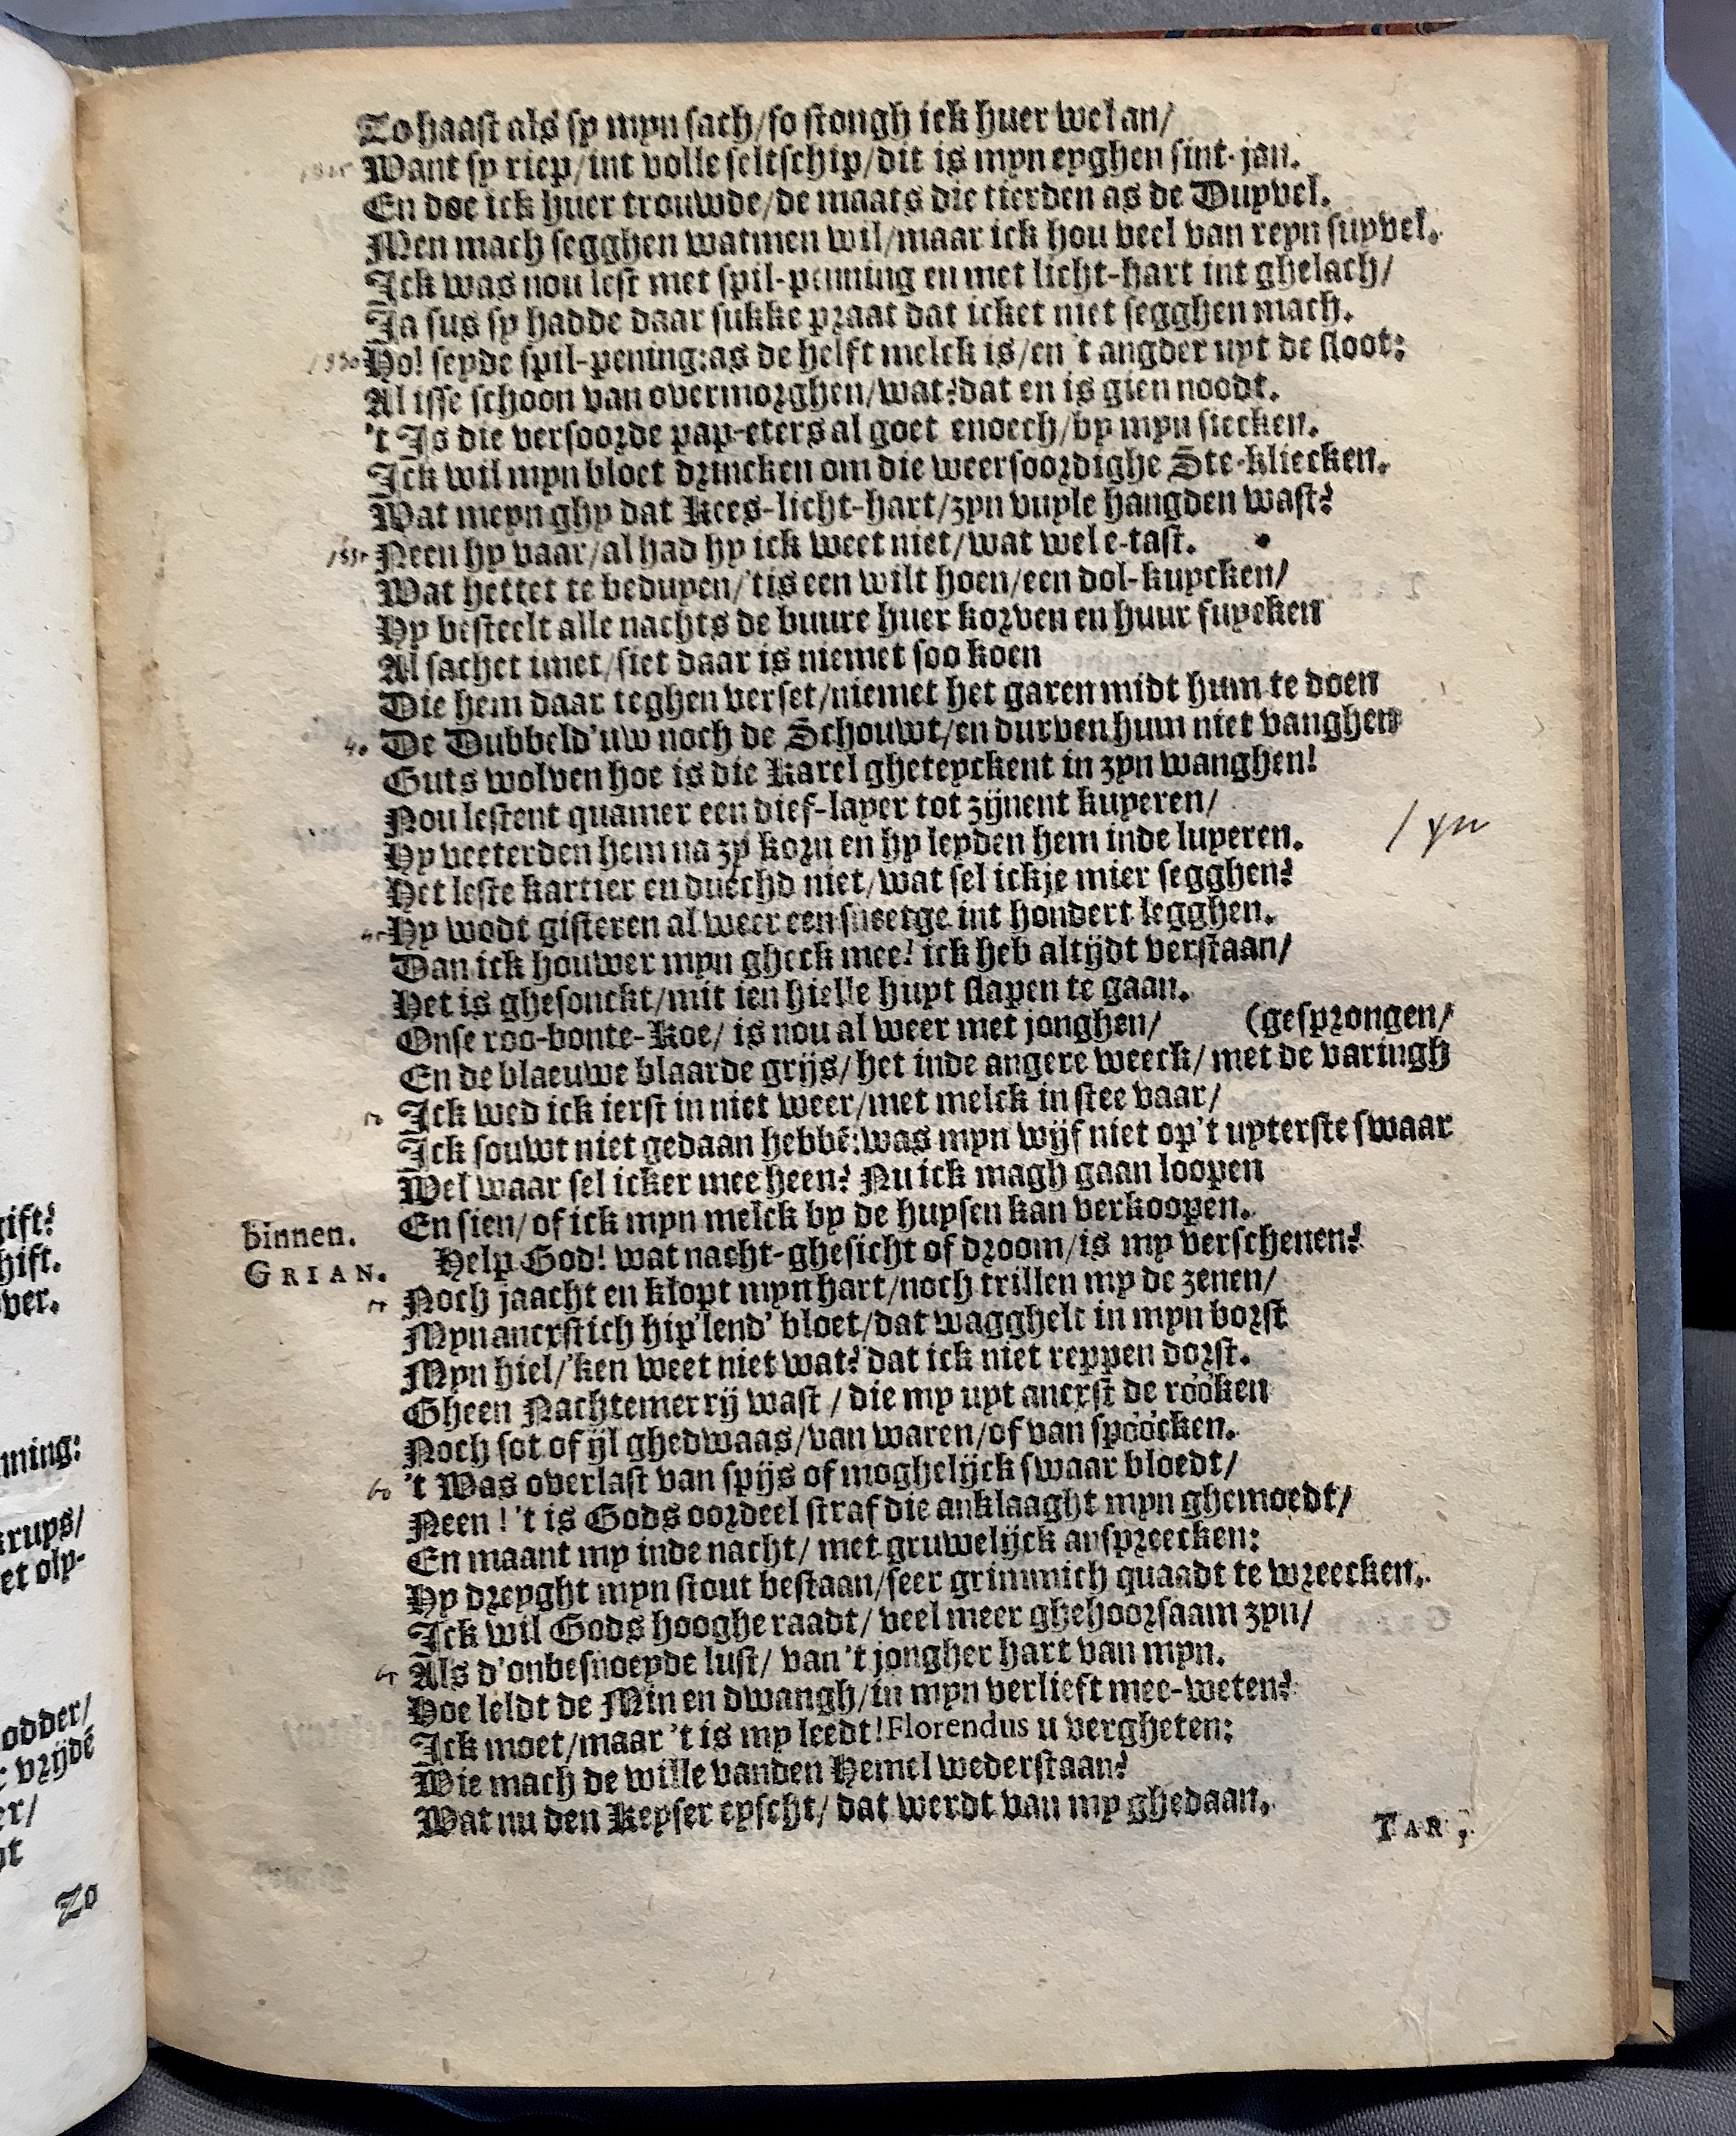 To haast als sy myn sach/so stongh ick huer wel an/
Want sy riep/int volle seltschip/dit is myn eyghen sint-jan.
En doe ick huer trouwde/de maats die tierden as de Duyvel.
Men mach segghen watmen wil/maar ick hou veel van reyn suyvel.
Ick was nou lest met spil-penning en met licht-hart int ghelach/
Ja sus sy hadde daar sukke praat dat icket niet segghen mach.
1530 Ho! seyde spil-pening:as de helft melck is/en 't angder uyt de sloot:
Al isse schoon van overmorghen/wat?dat en is gien noodt.
't Is die versoorde pap-eters al goet enoech/by myn siecken.
Ick wil myn bloet drincken om die weersoordighe Ste-kliecken.
Wat meyn ghy dat Kees-licht-hart/zyn vuyle hangden wast?
1535 Neen hy vaar/al had hy ick weet niet/wat wel e-tast.
Wat hettet te beduyen/'tis een wilt hoen/een dol-kuycken/
Hy besteelt alle nachts de buure huer korven en huur fuycken
Al sachet imet/siet daar is niemet soo koen
Die hem daar teghen verset/niemet het garen midt hum te doen
40 De Dubbeld'uw noch de Schouwt/en durven hum niet vanghen
Guts wolven hoe is die Karel gheteyckent in zyn wanghen!
Nou lestent quamer een dief-layer tot zijnent kuyeren/
Hy veeterden hem na zy korn en hy leyden hem inde luyeren. / yn
Het leste kartier en duechd niet/wat sel ickje mier segghen?
45 Hy wodt gisteren al weer een sneetge int hondert legghen.
Dan ick houwer myn gheck mee! ick heb altijdt verstaan/
Het is ghesonckt/mit ien hielle huyt slapen te gaan.
Onse roo-bonte-Koe/ is nou al weer met jonghen/ (gesprongen/
En de blaeuwe blaarde grijs/het inde angere weeck/met de varingh
50 Ick wed ick ierst in niet weer/met melck in stee vaar/
Ick souwt niet gedaan hebbē:was myn wijf niet op't uyterste swaar
Wel waar sel icker mee heen? Nu ick magh gaan loopen
En sien/of ick myn melck by de huysen kan verkoopen.
binnen.
GRIAN. Help God! wat nacht-ghesicht of droom/is my verschenen?
55 Noch jaacht en klopt myn hart/noch trillen my de zenen/
Myn ancrstich hip'lend' bloet/dat wagghelt in myn borst
Myn hiel/'ken weet niet wat? dat ick niet reppen dorst.
Gheen Nachtemerrij wast / die my uyt ancxst de rööken
Noch sot of ijl ghedwaas/van waren/of van spööcken.
60 't Was overlast van spijs of moghelijck swaar bloedt/
Neen ! 't is Gods oordeel straf die anklaaght myn ghemoedt/
En maant my inde nacht/ met gruwelijck anspreecken:
Hy dreyght myn stout bestaan/seer grimmich quaadt te wreecken.
Ick wil Gods hooghe raadt/ veel meer ghehoorsaam zyn/
65 Als d'onbesnoeyde lust/ van 't jongher hart van myn.
Hoe leldt de Min en dwangh/in myn verlieft mee-weten?
Ick moet/maar 't is my leedt!Florendus u vergheten:
Wie mach de wille vanden Hemel wederstaan?
Wat nu den Keyser eyscht/ dat werdt van my ghedaan.
TAR.